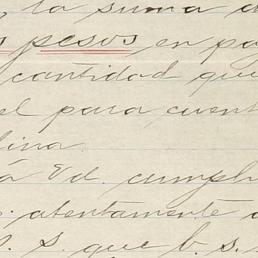 y la suma d
s pesos en pa
cantidad que
el para cuent
lina.
á Vd. cumpli
s. atentamente a
S. S. que b. s.